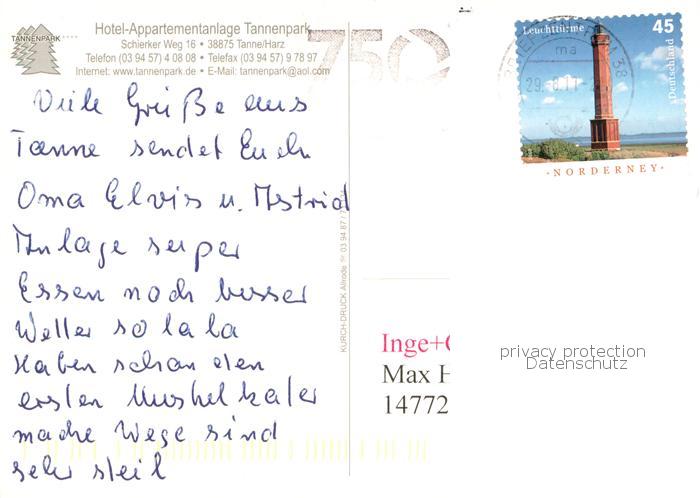 TANNENPARK
Hotel-Appartementanlage Tannenpark
Schierker Weg 16 • 38875 Tanne/Harz
Telefon (03 94 57) 4 08 08 • Telefax (03 94 57) 9 78 97
Internet: www.tannenpark.de • E-Mail: tannenpark@aol.com
Viele Grüße aus
Tanne sendet Euch
Oma Elvis u. Astrid
Anlage super
Essen noch besser
Wetter so la la
Haben schon den
ersten Muskelkater
manche Wege sind
sehr steil
KURCH-DRUCK Allrode
750
Leuchttürme
45
Deutschland
· NORDERNEY ·
Inge+
Max H
14772
privacy protection
Datenschutz